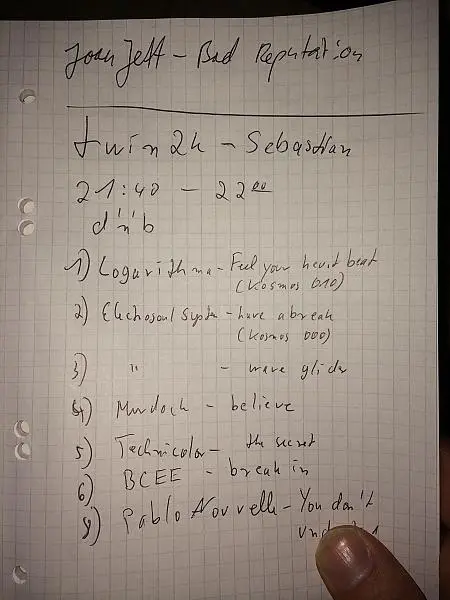 Joan Jett - Bad Reputation
twin2k - Sebastian
21:40 - 22 00
d'n'b
1) Logarithma - Feel your heart beat
(Kosmos 010)
2) Electrosoul System - have a break
(Kosmos 000)
3) " - wave glider
4) Murdock - believe
5) Technicolor - the secret
6) BCEE - break in
8) Pablo Nouvelle - You don't